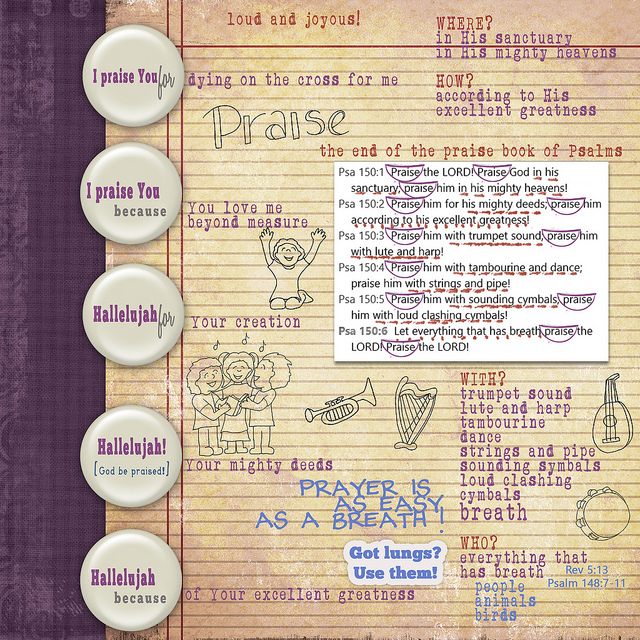 loud and joyous!
WHERE?
in His sanctuary
in His mighty heavens
I praise You for
dying on the cross for me
HOW?
according to His
excellent greatness
Praise
the end of the praise book of Psalms
Psa 150:1 Praise the LORD! Praise God in his
sanctuary; praise him in his mighty heavens!
Psa 150:2 Praise him for his mighty deeds; praise him
according to his excellent greatness!
Psa 150:3 Praise him with trumpet sound; praise him
with lute and harp!
Psa 150:4 Praise him with tambourine and dance;
praise him with strings and pipe!
Psa 150:5 Praise him with sounding cymbals; praise
him with loud clashing cymbals!
Psa 150:6 Let everything that has breath praise the
LORD! Praise the LORD!
I praise You
because
You love me
beyond measure
Hallelujah for
Your creation
Hallelujah!
[God be praised!]
Your mighty deeds
WITH?
trumpet sound
lute and harp
tambourine
dance
strings and pipe
sounding symbals
loud clashing
cymbals
breath
PRAYER IS
AS EASY
AS A BREATH!
Got lungs?
Use them!
WHO?
everything that
has breath
people
animals
birds
Rev 5:13
Psalm 148:7-11
Hallelujah
because
of Your excellent greatness